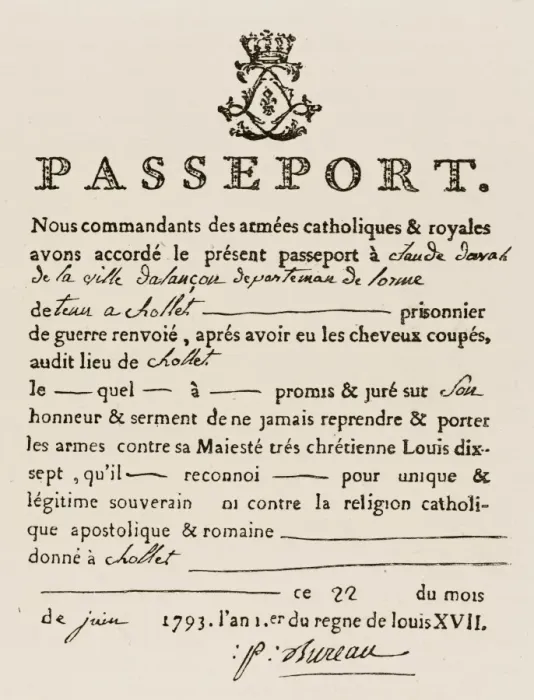 PASSEPORT.
Nous commandants des armées catholiques & royales
avons accordé le présent passeport à claude davak
de la ville dalançon departeman de lorme
detenu a chollet prisonnier
de guerre renvoié, aprés avoir eu les cheveux coupés,
audit lieu de chollet
le — quel — à — promis & juré sur son
honneur & serment de ne jamais reprendre & porter
les armes contre sa Maiesté trés chrétienne Louis dix-
sept, qu'il — reconnoi — pour unique &
légitime souverain ni contre la religion catholi-
que apostolique & romaine
donné à chollet
ce 22 du mois
de juin 1793. l'an 1.er du regne de louis XVII.
:p: Bureau